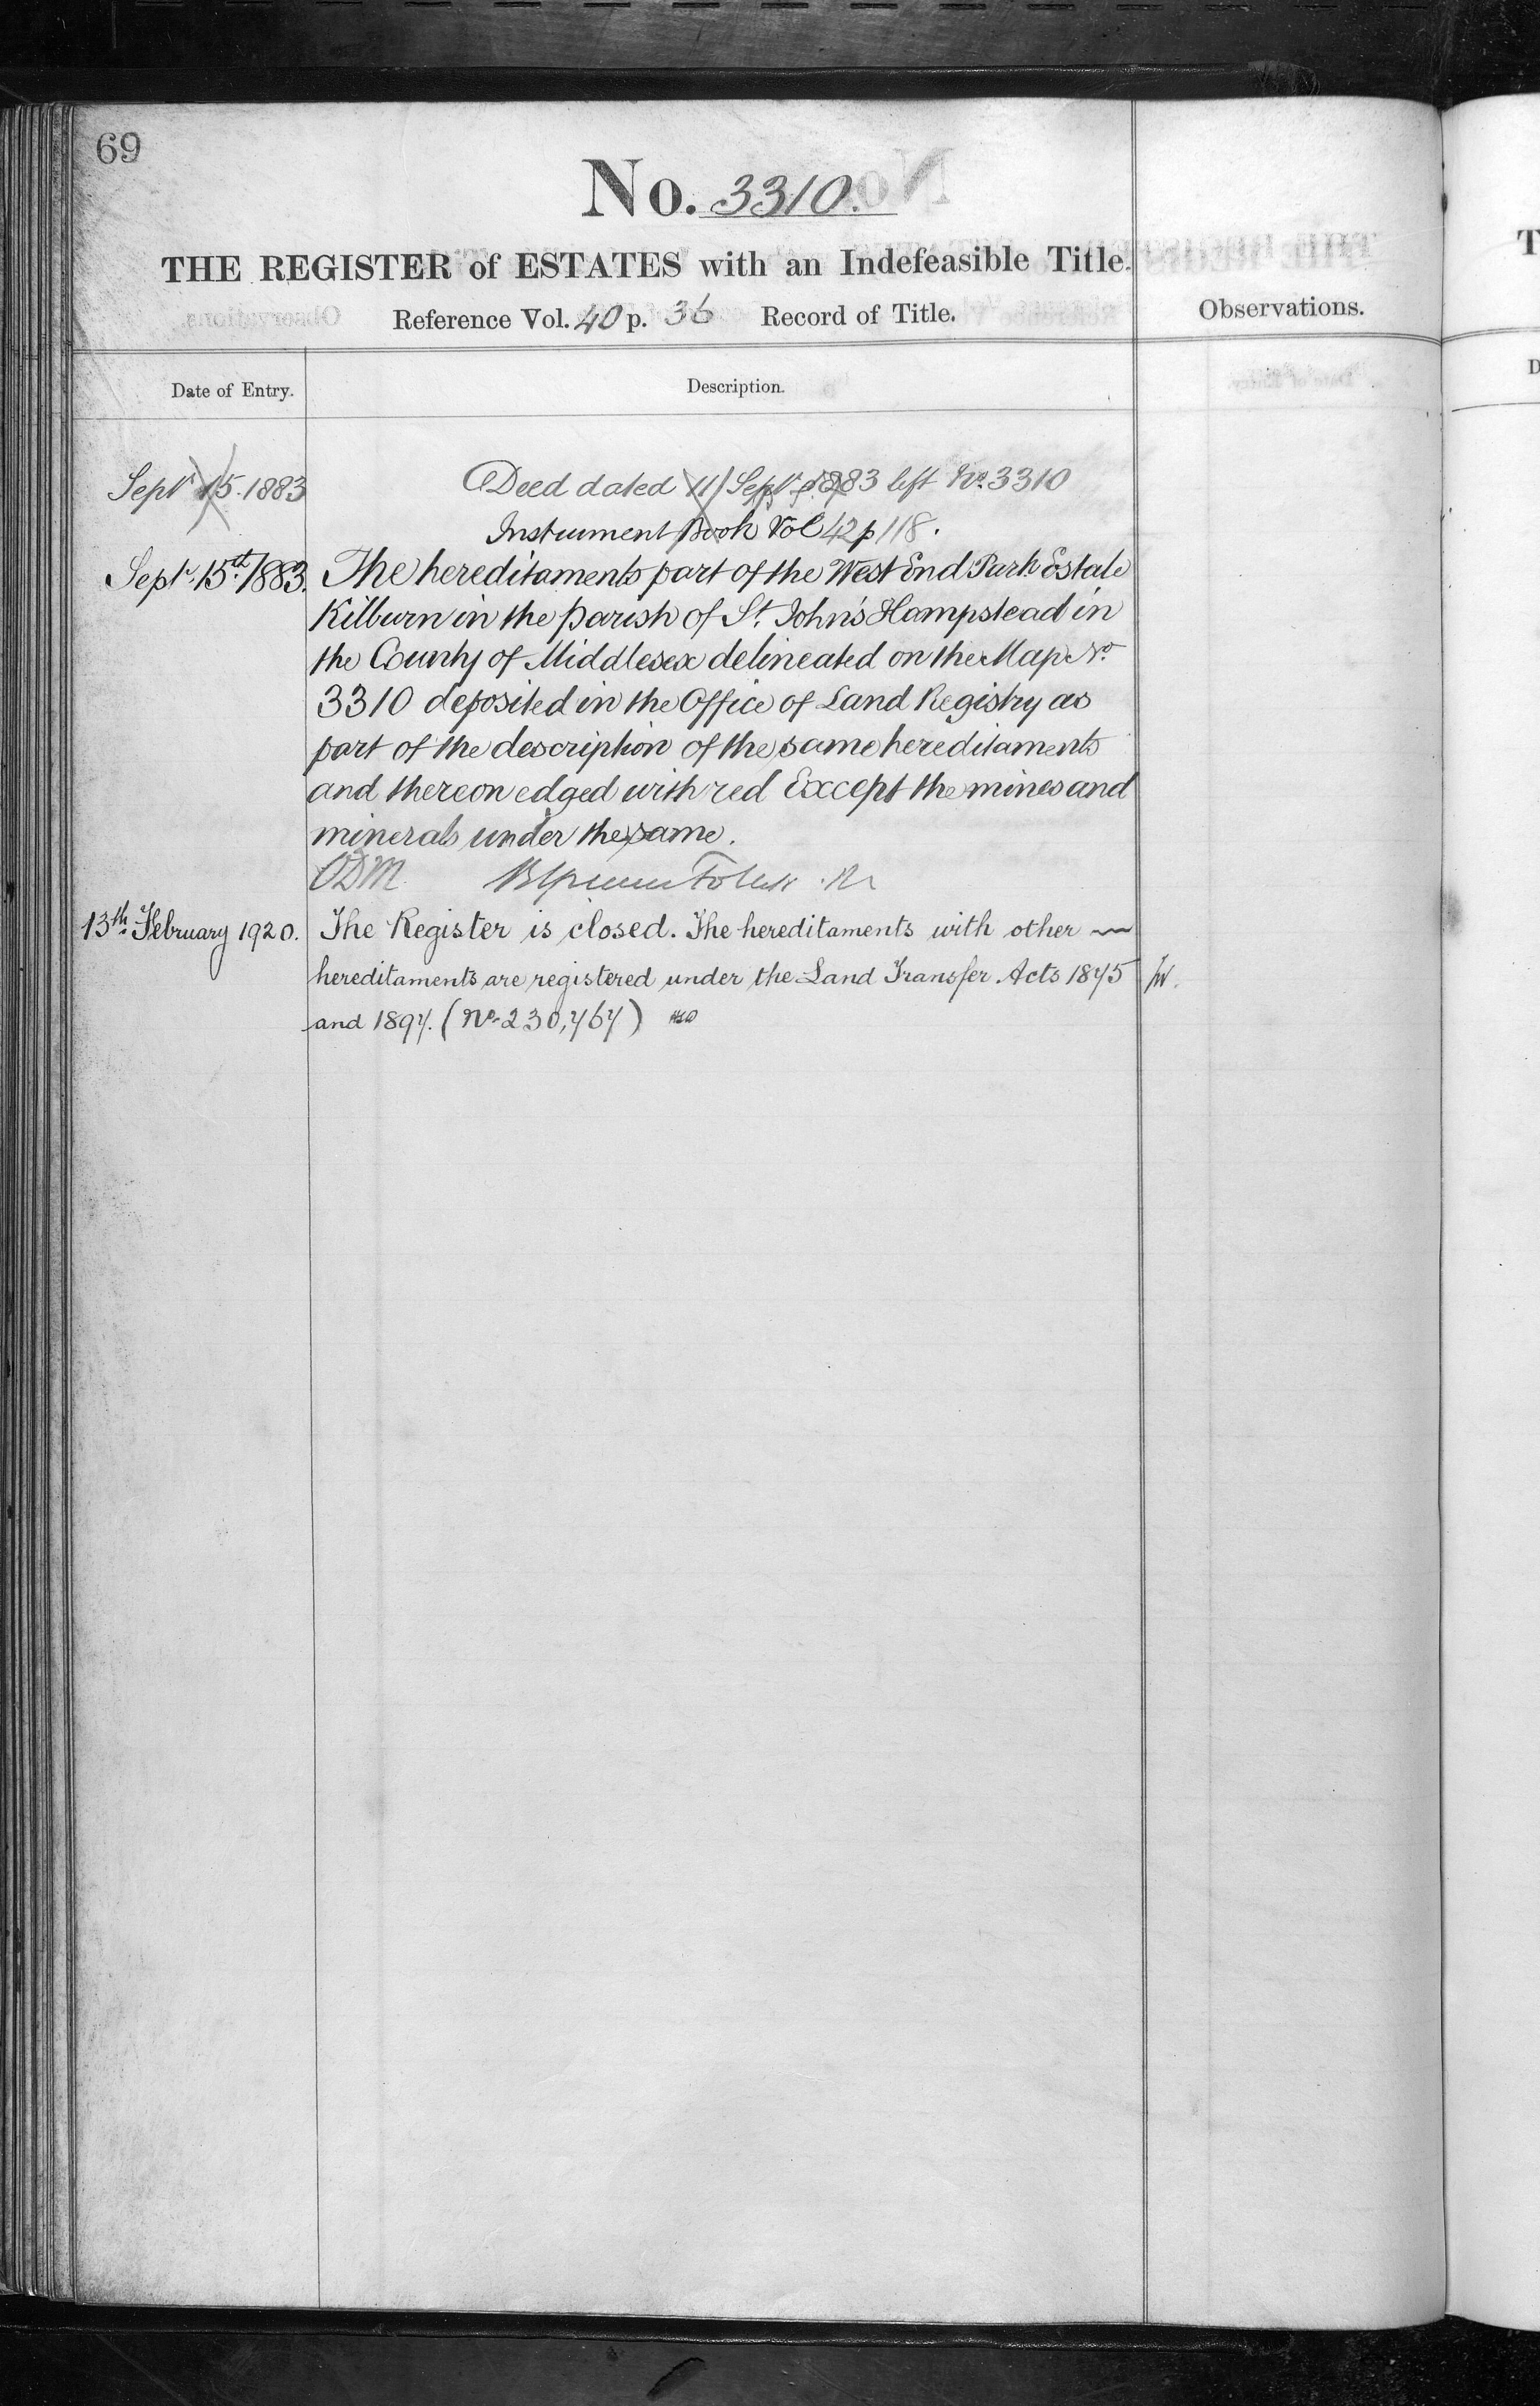 69
No. 3310.
THE REGISTER of ESTATES with an Indefeasible Title.
Reference Vol. 40 p. 36 Record of Title.
Observations.
Date of Entry.
Description.
Septr 15. 1883
Deed dated 11 Septr 1883 left No. 3310
Instrument Book Vol 42 p 118.
Septr. 15th. 1883.
The hereditaments part of the West End Park Estate
Kilburn in the parish of St. John's Hampstead in
the County of Middlesex delineated on the Map No.
3310 deposited in the Office of Land Registry as
part of the description of the same hereditaments
and thereon edged with red Except the mines and
minerals under the same.
ODM
13th. February 1920.
The Register is closed. The hereditaments with other
hereditaments are registered under the Land Transfer Acts 1875
and 1897. (No. 230,767)